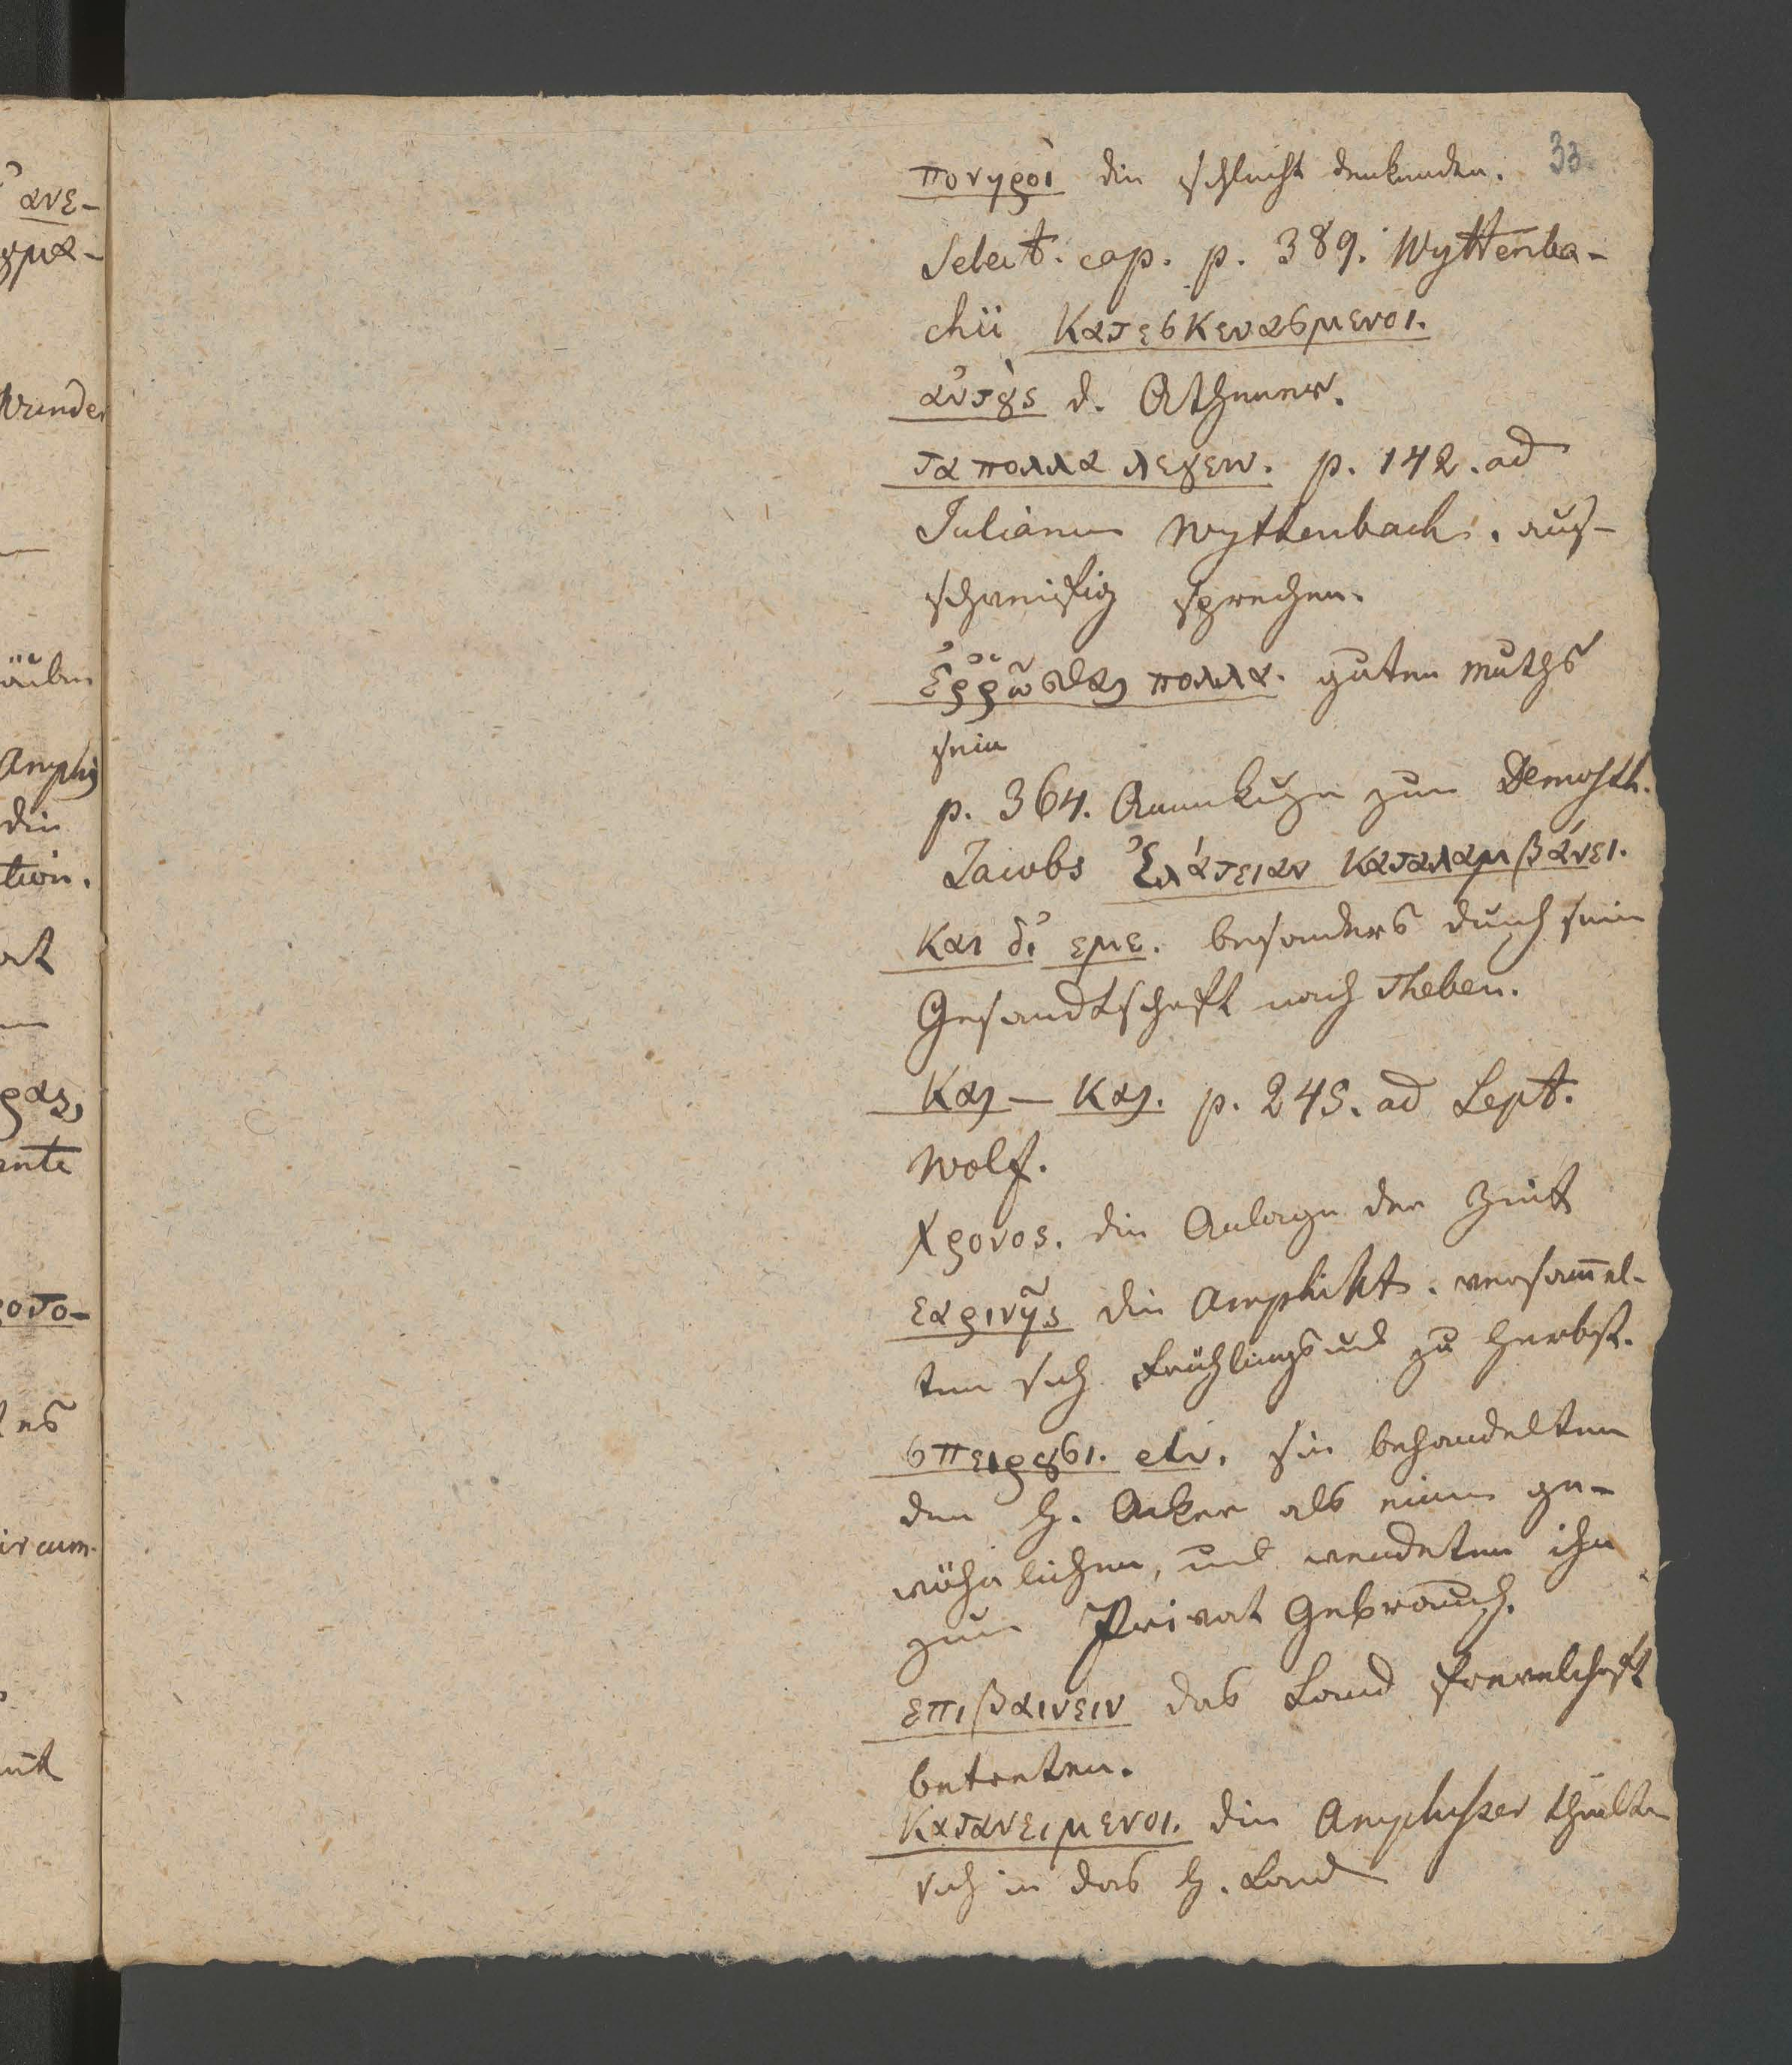 33
πονηροὶ die schlecht denkenden.
Select. cap. p. 389. Wyttenba-
chii Κατεσκευασμενοι.
αὐτοὺς d. Athener.
τα πολλα λεγειν. p. 142. ad
Julianum Wyttenbach. aus-
schweifig sprechen.
ἐῤῥῶσθαι πολλα. guten Muths
sein
p. 364. Anmerkugn zum Demosth.
Jacobs Ἐλάτειαν Καταλαμβάνει.
Και δι' εμε. besonders durch seine
Gesandtschaft nach Theben.
Και — Και. p. 245. ad Lept.
Wolf.
Χρονος. die Anlage der Zeit
εαρινῆς die Amphikt. versam̄el-
ten sich Frühlings und zu Herbst.
σπειρουσι. etc. sie behandelten
den h. Acker als einen ge-
wöhnlichen, und wendeten ihn
zum Privat Gebrauch.
επιβαινειν das Land frevelhaft
betreten.
Κατανειμενοι. die Amphisser theilten
sich in das h. Land
ανε-
ουμα-
Wunder
Amphis
die
tion.
ρας,
ante
οτο-
es
ircum-